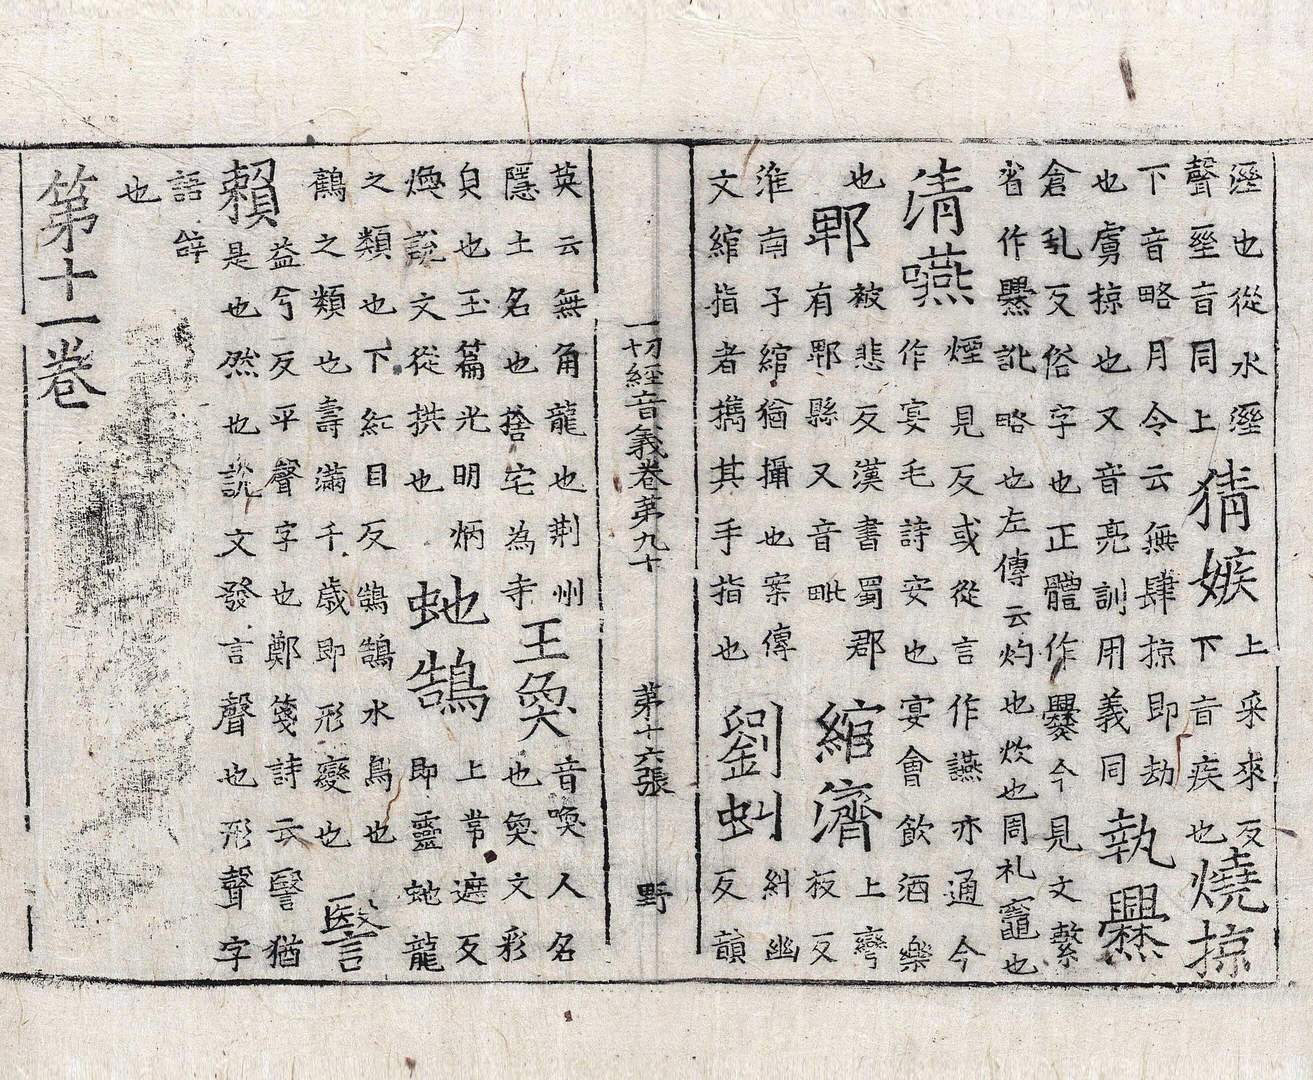 溼也從水溼
聲巠音同上
猜嫉
上采來反
下音疾也
燒掠
下音略月令云無肆掠即劫
也虜掠也又音亮訓用義同
執爨
倉乱反俗字也正體作爨今見文繫
省作㸑訛略也左傳云灼也炊也周礼竈也
清嚥
煙見反或從言作讌亦通今
作宴毛詩安也宴會飲酒樂
也
郫
被悲反漢書蜀郡
有郫縣又音毗
綰濟
上彎
板反
淮南子綰猶攝也案傳
文綰指者擕其手指也
劉虯
糾幽
反韻
一切經音義卷第九十 第十六張 野
英云無角龍也荆州
隱土名也捨宅為寺
王奐
音喚人名
也奐文彩
皃也玉篇光明炳
煥說文從拱也
虵鵠
上常遮反
即靈虵龍
之類也下紅目反鵠鵠水鳥也
鶴之類也壽滿千歲即形變也
賴
益兮反平聲字也鄭箋詩云猶
是也然也說文發言聲也形聲字
語辝
也
第十一卷